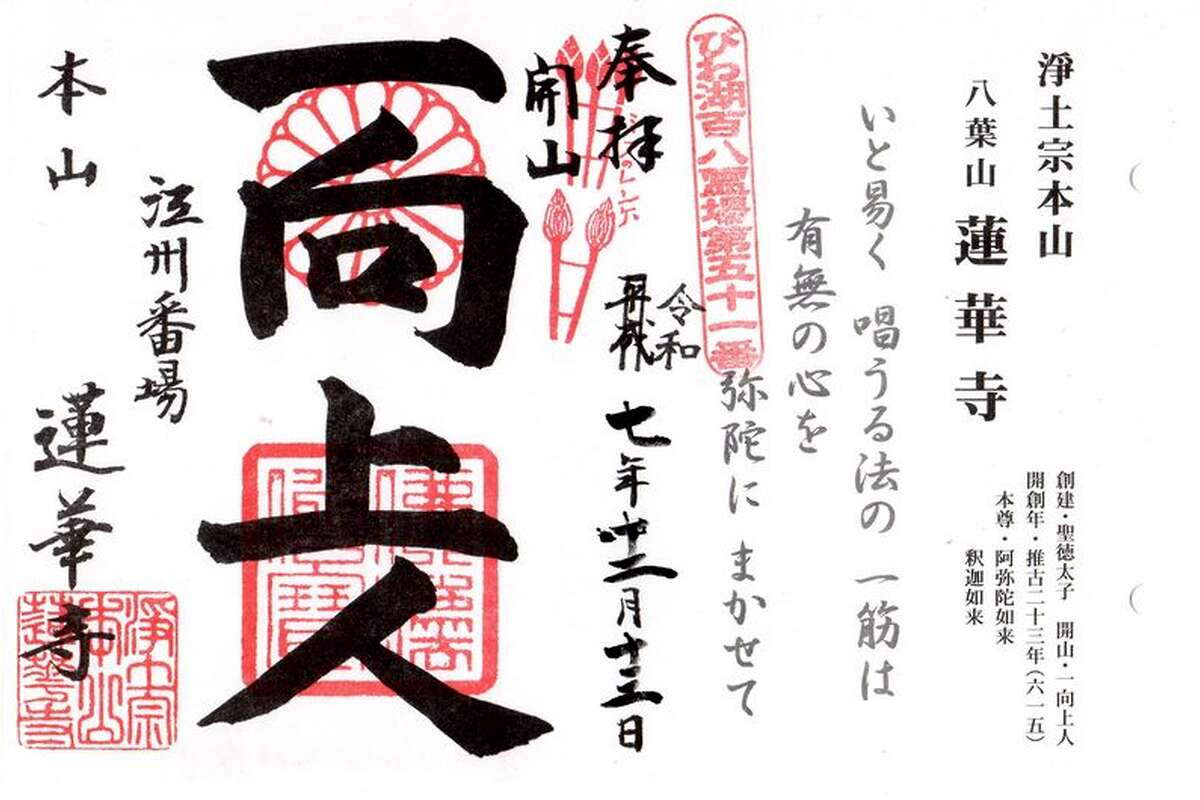 淨土宗本山
八葉山 蓮華寺
創建・聖徳太子 開山・一向上人
開創年・推古二十三年(六一五)
本尊・阿弥陀如来
釈迦如来
いと易く 唱うる法の 一筋は
有無の心を
弥陀に まかせて
びわ湖百八霊場第五十一番
奉拝
令和
再拝
七年十二月十三日
開山
一向上人
江州番場
本山 蓮華寺
淨土宗
本山
蓮華寺